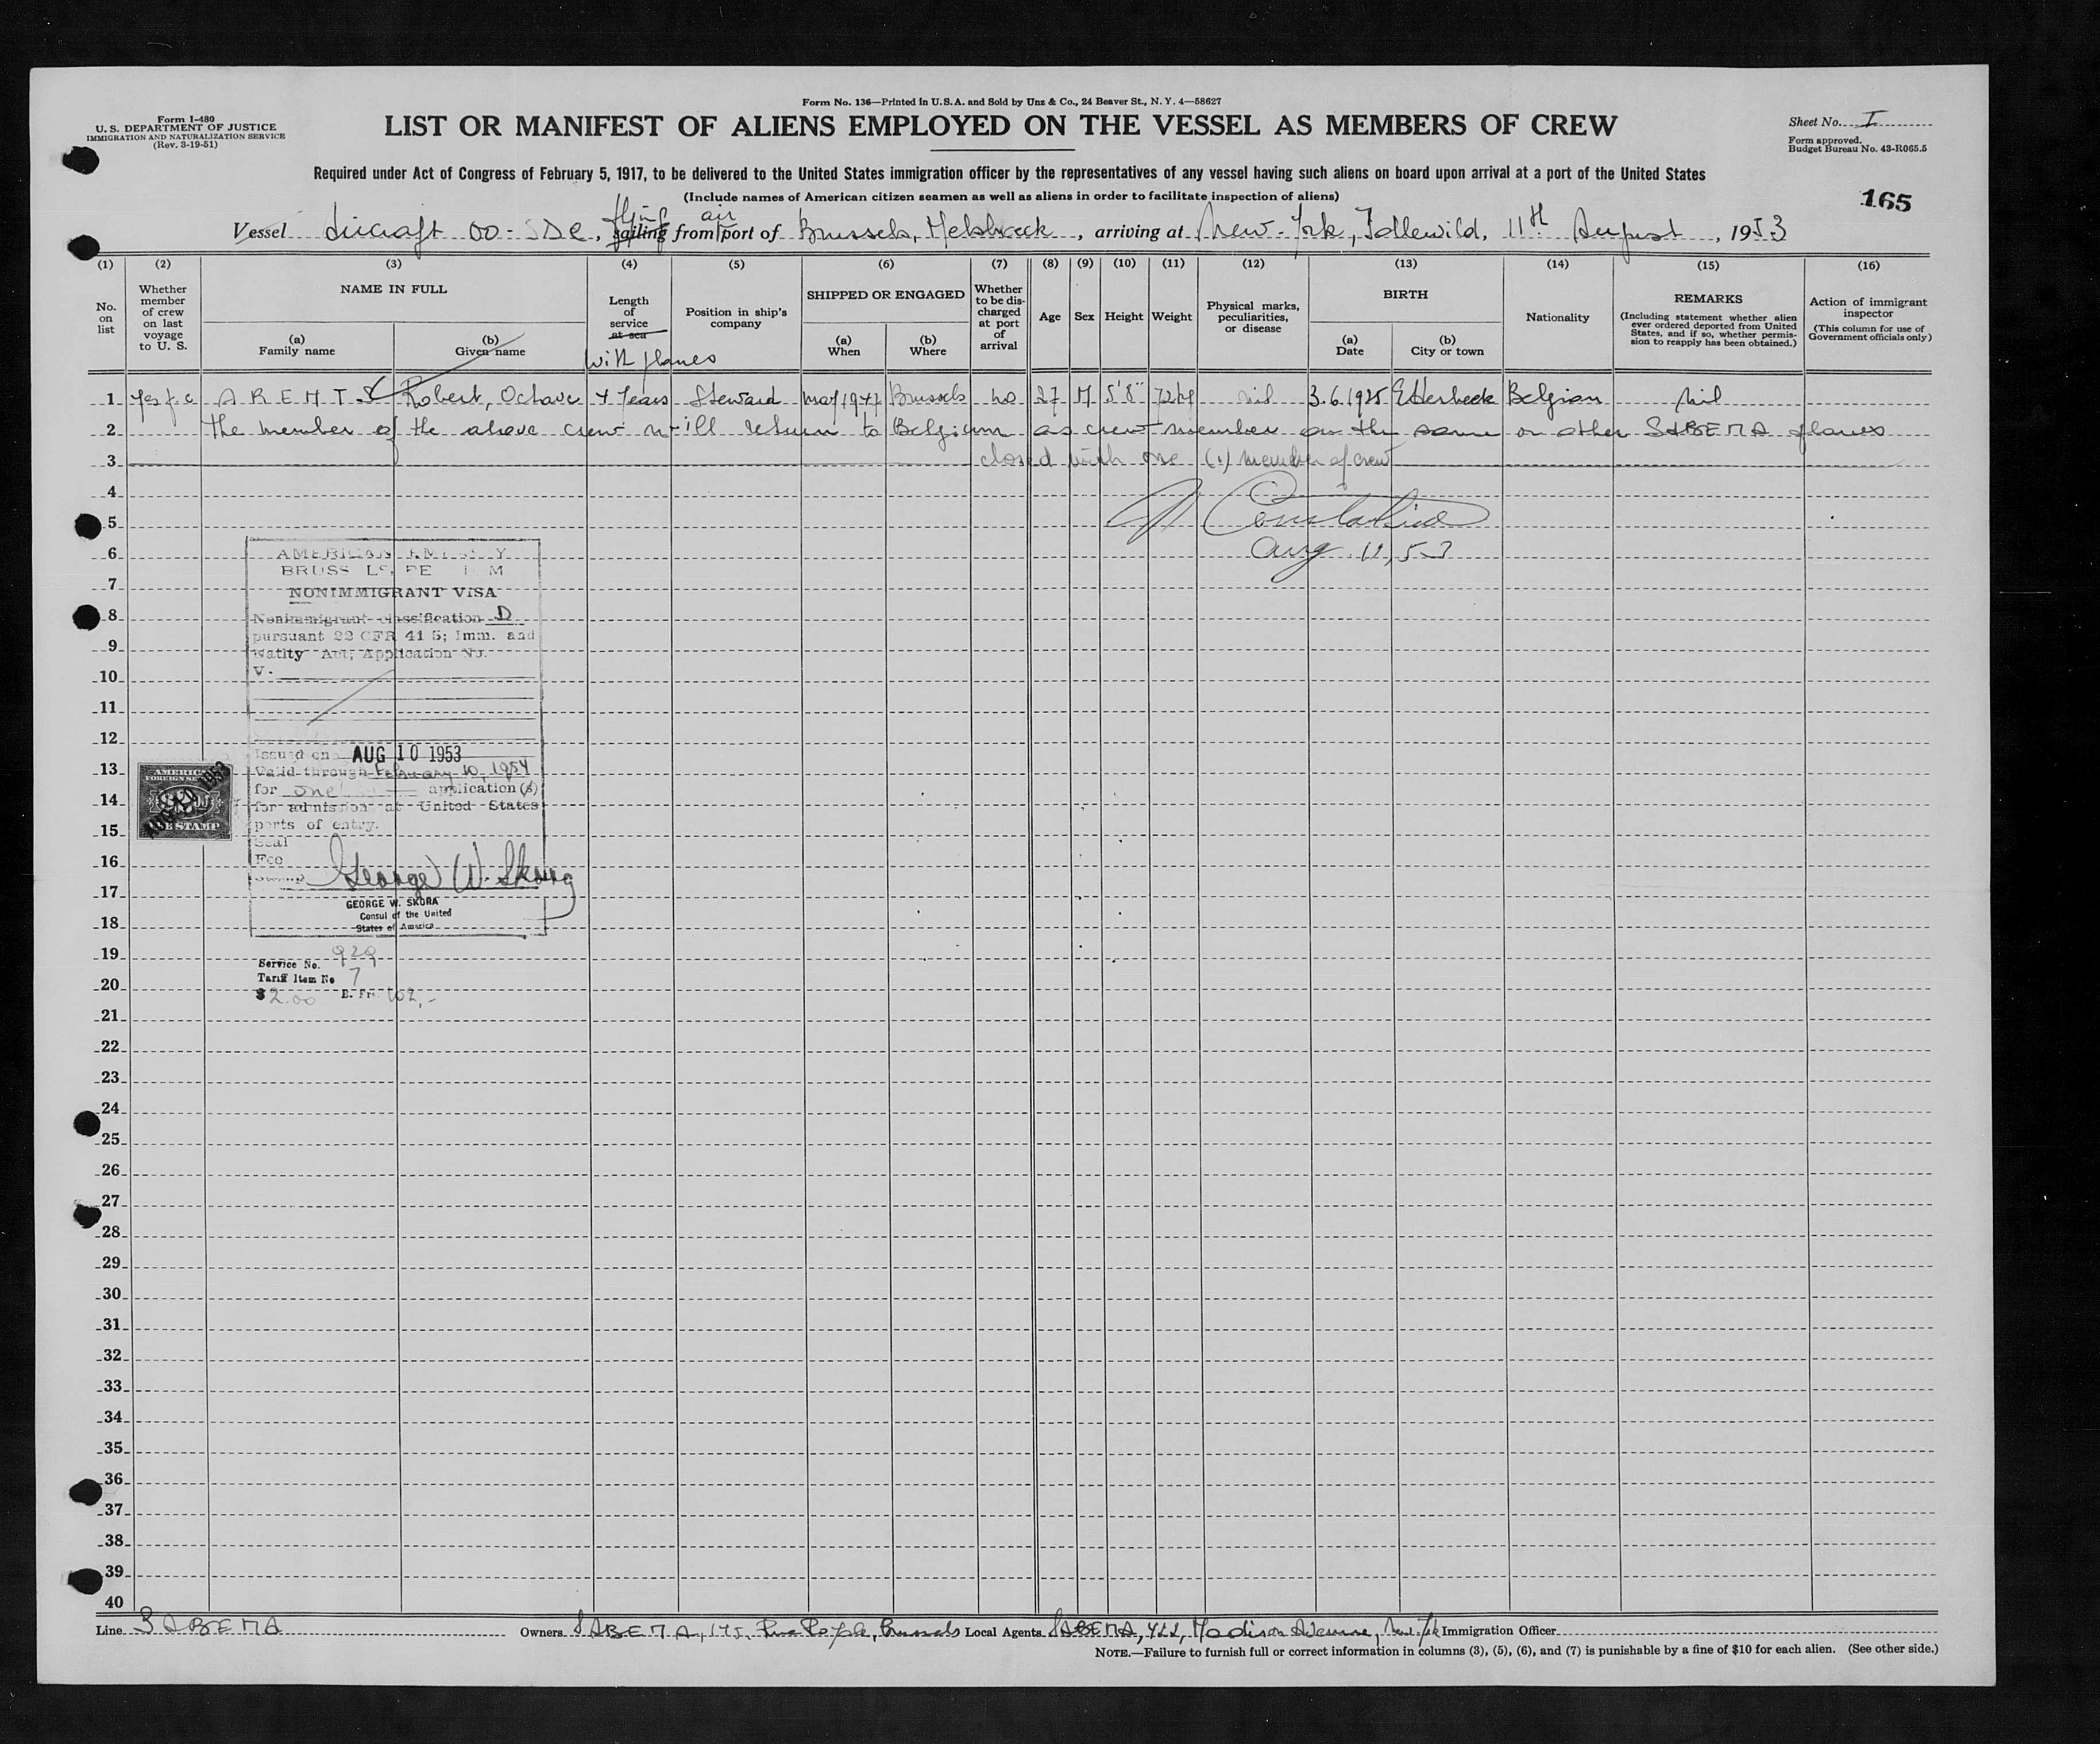 Form No. 136—Printed in U.S.A. and Sold by Unz & Co., 24 Beaver St., N. Y. 4—58627
Form I-480
U. S. DEPARTMENT OF JUSTICE
IMMIGRATION AND NATURALIZATION SERVICE
(Rev. 3-19-51)
LIST OR MANIFEST OF ALIENS EMPLOYED ON THE VESSEL AS MEMBERS OF CREW
Sheet No. I
Form approved.
Budget Bureau No. 43-R065.5
Required under Act of Congress of February 5, 1917, to be delivered to the United States immigration officer by the representatives of any vessel having such aliens on board upon arrival at a port of the United States
(Include names of American citizen seamen as well as aliens in order to facilitate inspection of aliens)
165
flying air
Vessel Aircraft OO-SDC, sailing from port of Brussels, Melsbroeck, arriving at New-York, Idlewild, 11th August, 1953
(1) (2) (3) (4) (5) (6) (7) (8) (9) (10) (11) (12) (13) (14) (15) (16)
No. on list
Whether member of crew on last voyage to U. S.
NAME IN FULL
(a) Family name
(b) Given name
Length of service at sea
with planes
Position in ship's company
SHIPPED OR ENGAGED
(a) When
(b) Where
Whether to be discharged at port of arrival
Age
Sex
Height
Weight
Physical marks, peculiarities, or disease
BIRTH
(a) Date
(b) City or town
Nationality
REMARKS
(Including statement whether alien ever ordered deported from United States, and if so, whether permission to reapply has been obtained.)
Action of immigrant inspector
(This column for use of Government officials only)
1 yes AREMTS Robert, Octave 7 Years Steward may 1947 Brussels no 27 M 5'8" 72 kg nil 3.6.1925 Etterbeek Belgian Nil
2 the member of the above crew will return to Belgium as crew member on the same or other SABENA planes
3 closed with one (1) member of crew
4
5
6 Aug 11, 53
7
8
9
10
11
12
13
14
15
16
17
18
19
20
21
22
23
24
25
26
27
28
29
30
31
32
33
34
35
36
37
38
39
40
AMERICAN EMBASSY
BRUSSELS, BELGIUM
NONIMMIGRANT VISA
Nonimmigrant classification D
pursuant 22 CFR 41 5; Imm. and
Natlty Act; Application No.
V.
Issued on AUG 10 1953
Valid through February 10, 1954
for one application(s)
for admission at United States
ports of entry.
Seal
Fee
Stamp George W. Skora
GEORGE W. SKORA
Consul of the United
States of America
Service No. 929
Tariff Item No 7
$2.00 B. Fr. 102,-
AMERICAN
FOREIGN SERVICE
FEE STAMP
Line SABENA Owners SABENA, 145, Rue Royale, Brussels Local Agents SABENA, 422, Madison Avenue, New-York Immigration Officer
NOTE.—Failure to furnish full or correct information in columns (3), (5), (6), and (7) is punishable by a fine of $10 for each alien. (See other side.)